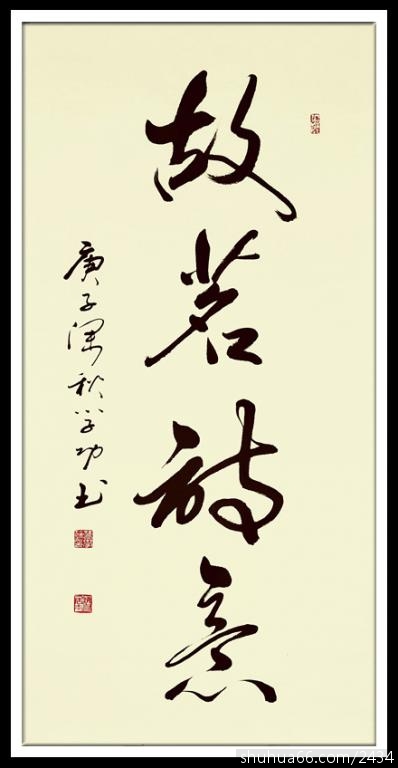 故茗詩意
庚子深秋学功书
shuhua66.com/2434